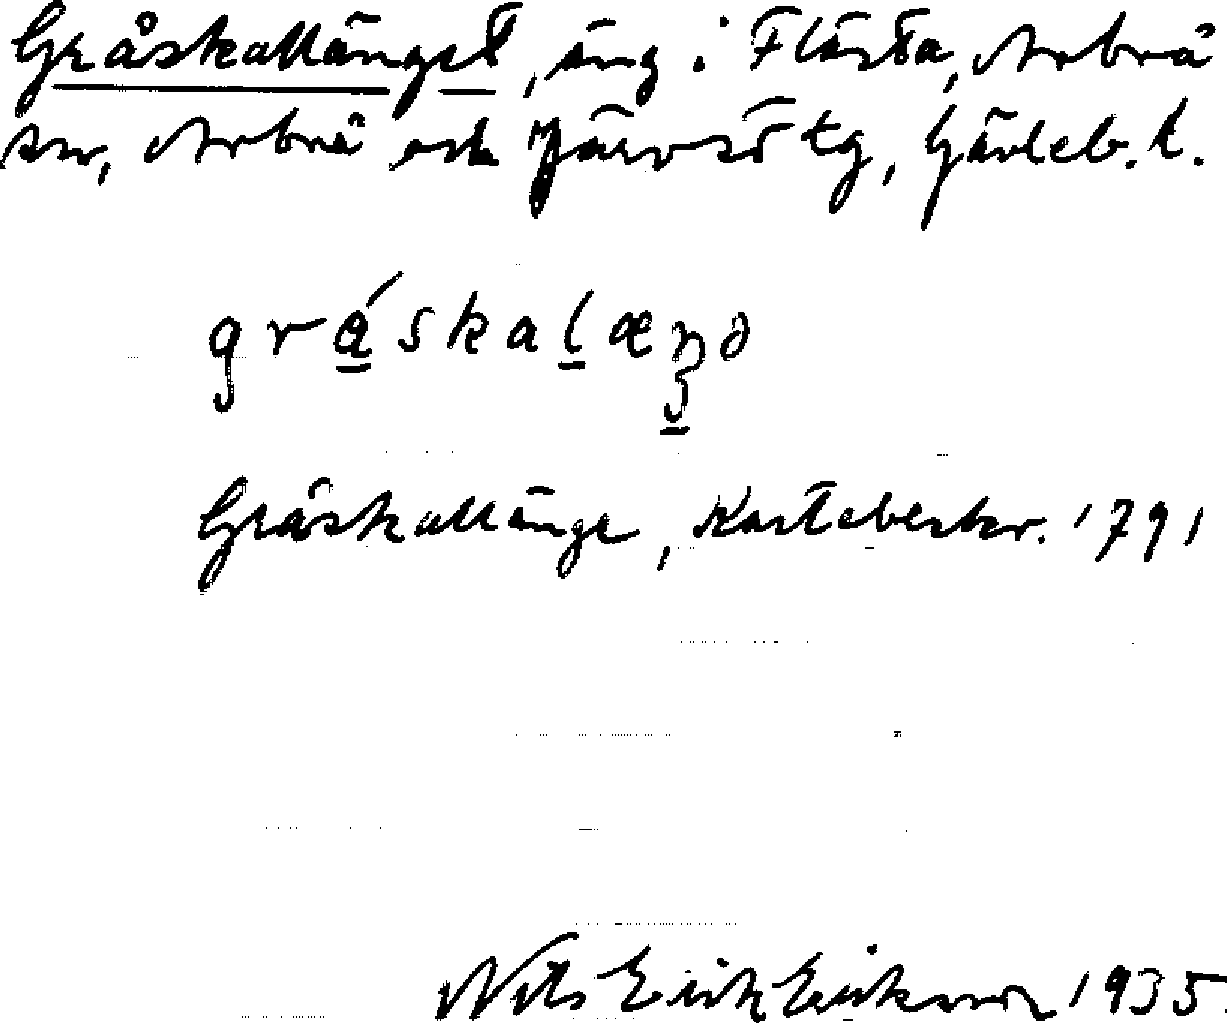 Gråskallänget, äng i Flästa, Arbrå
sn, Arbrå och Järvsö tg, Gävleb. l.
Gråskallänge, Kartebeskr. 1791
Nils Erik Eriksson 1935